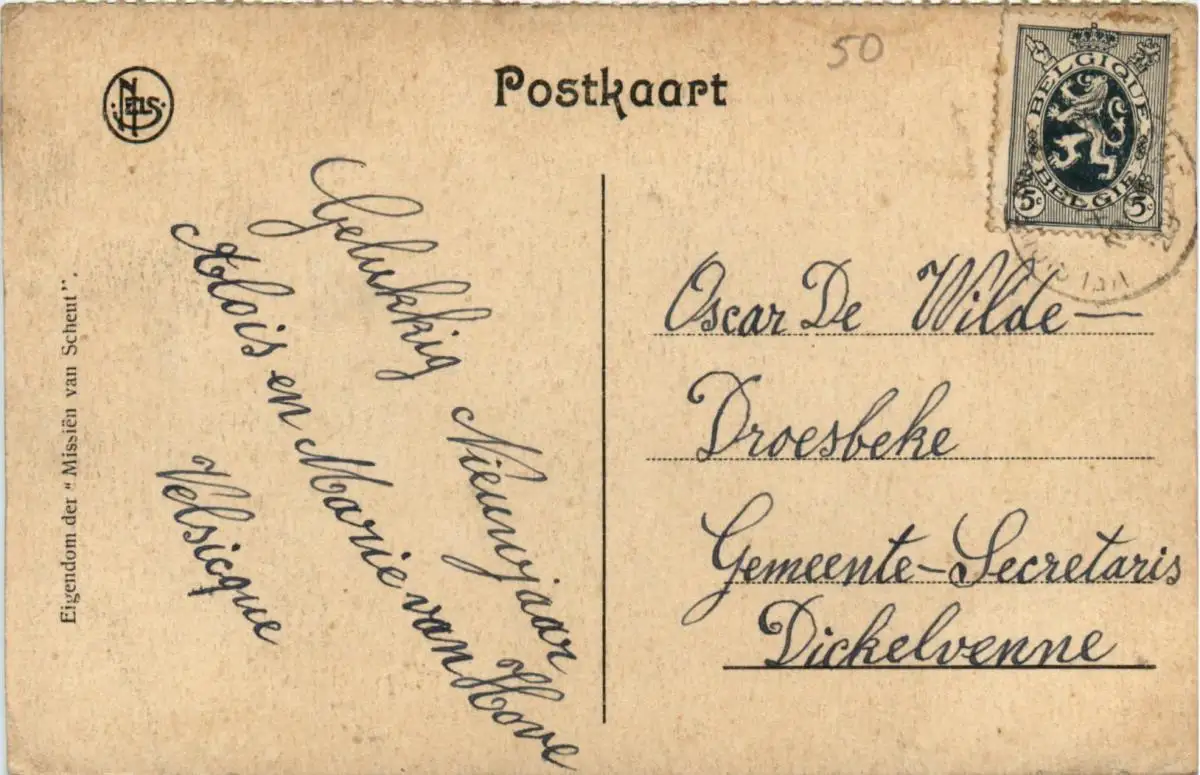 50
Postkaart
NELS
BELGIQUE
BELGIË
5c 5c
Eigendom der "Missiën van Scheut".
Gelukkig Nieuwjaar
Aloïs en Marie van Hove
Velsicque
Oscar De Wilde—
Droesbeke
Gemeente-Secretaris
Dickelvenne